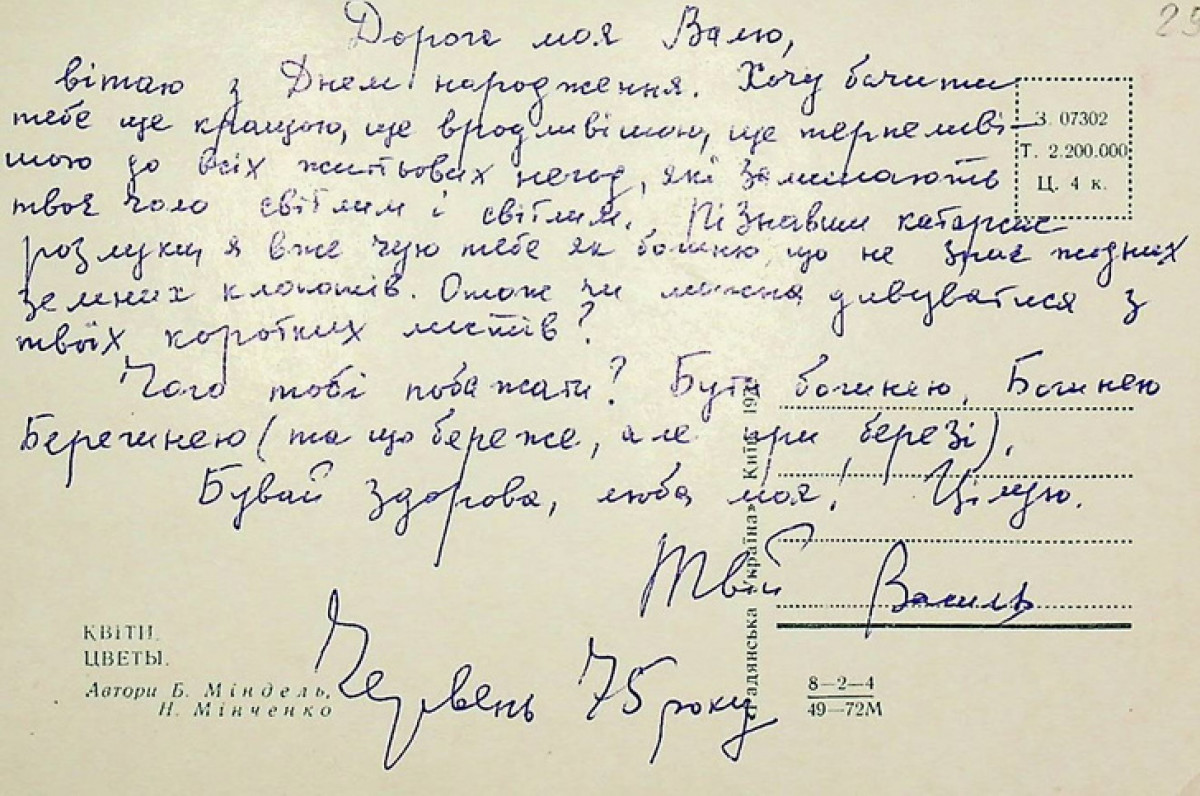 25
Дорога моя Валю,
вітаю з Днем народження. Хочу бачити
тебе ще кращою, ще вродливішою, ще терпеливі-
шою до всіх життьових негод, які залишають
твоє чоло світлим і світлим. Пізнавши катарсис
розлуки, я вже чую тебе як богиню, що не знає жодних
земних клопотів. Отож чи можна дивуватися з
твоїх коротких листів?
Чого тобі побажати? Бути богинею, Богинею
Берегинею (та що береже, але при березі).
Бувай здорова, люба моя! Цілую.
Твій Василь
Червень 75 року
З. 07302
Т. 2.200.000
Ц. 4 к.
КВІТИ.
ЦВЕТЫ.
Автори Б. Міндель,
Н. Мінченко
«Радянська Україна» Київ
8—2—4
49—72М